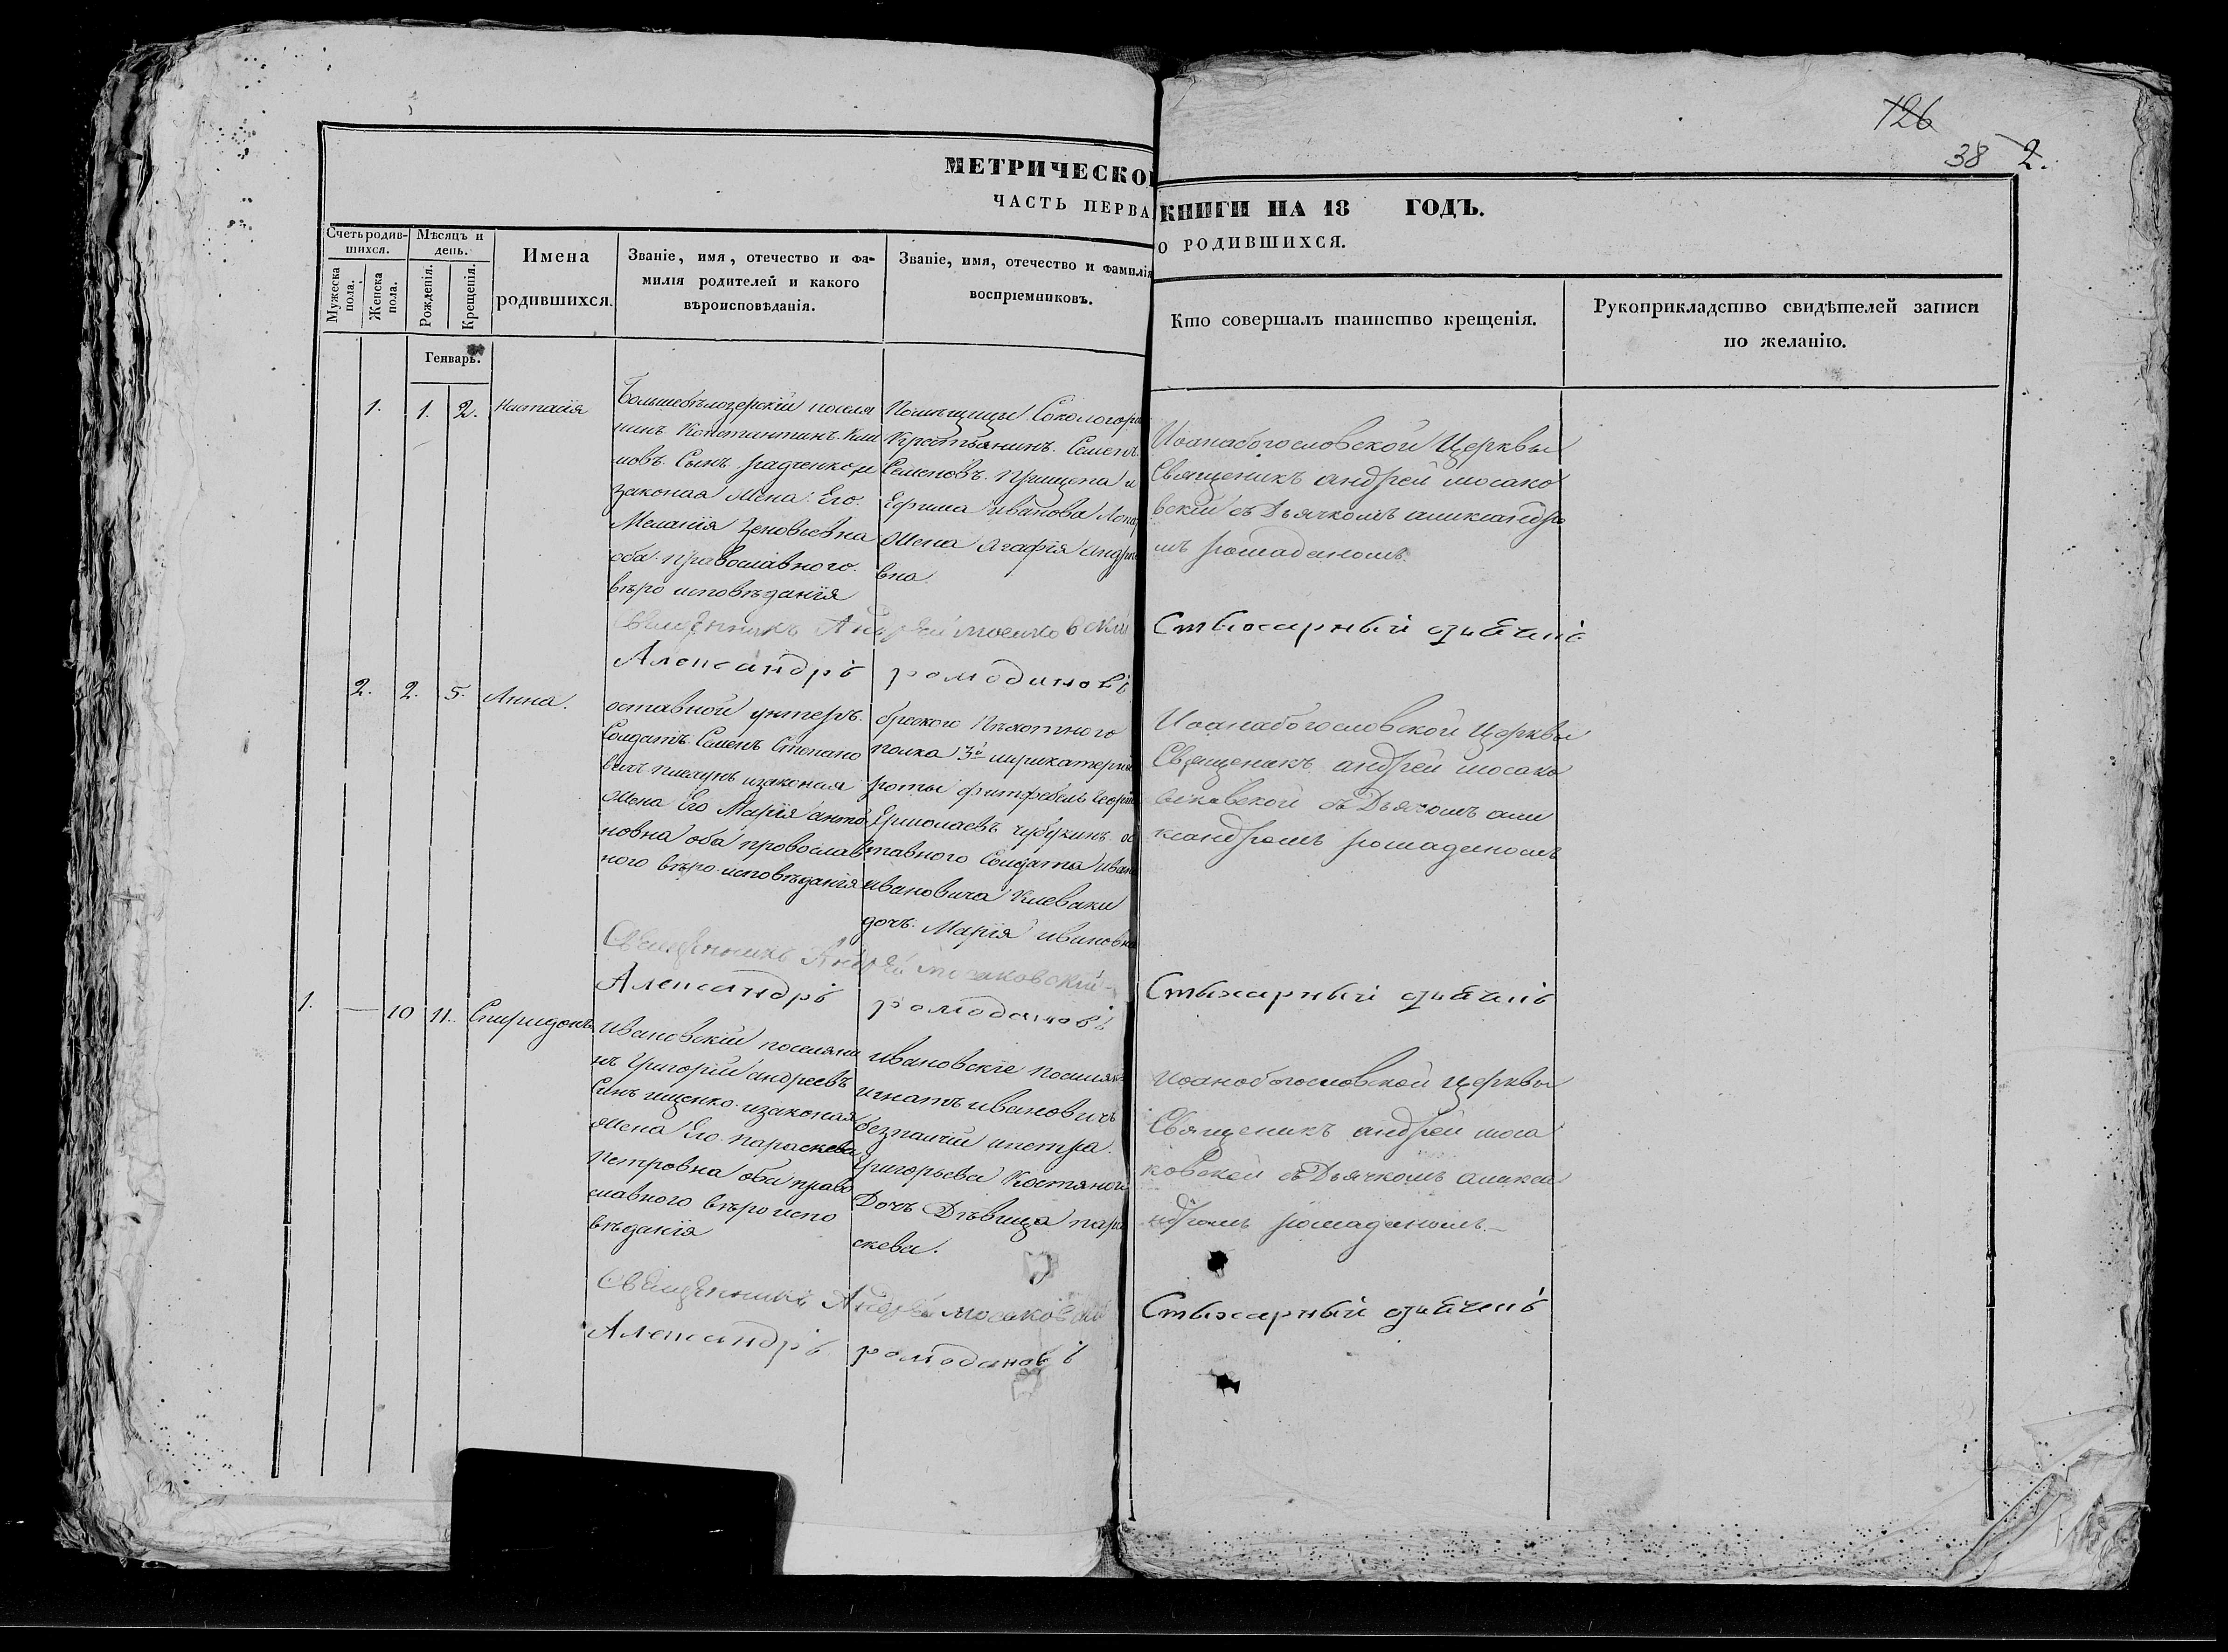 126
38 2.
МЕТРИЧЕСКО
КНИГИ НА 18 ГОДЪ.
ЧАСТЬ ПЕРВА
О РОДИВШИХСЯ.
Счетъ родив-
шихся.
Мужеска
пола.
Женска
пола.
Мѣсяцъ и
день.
Рожденія.
Крещенія.
Имена
родившихся.
Званіе, имя, отечество и фа-
милія родителей и какого
вѣроисповѣданія.
Званіе, имя, отечество и фамилія
воспріемниковъ.
Кто совершалъ таинство крещенія.
Рукоприкладство свидѣтелей записи
по желанію.
Генварь.
1. 1. 2. Настасія
Большебѣлозерскій поселя
нинъ Константинъ Кли
мовъ Сынъ Радченко и
законая Жена Его
Меланія Зеновьевна
оба Православного
вѣро исповѣданія
Помѣщицы
Крестьянинъ Семенъ
Семеновъ Прищепа и
Ефима Иванова
Жена Агафія Андре
вна
Иоанабогословской Церквы
Священикъ андрей мосако
вскій съ Дьячкомъ аликсандро
мъ ромаданомъ
Священникъ Андрей Мосаковскій
Александръ ромодановъ
Стихарный
2. 2. 5. Анна.
оставной унтеръ
Солдатъ Семенъ Степано
изаконая
Жена Его Марія анто
новна оба провослав
ного вѣро исповѣданія
Пѣхотного
полка 3й
роты фитфебель
Ермолаевъ ос
тавного Солдата Ивана
ивановича
дочъ Марія ивановна
Иоанабогословской Церквы
Священикъ андрей мосако
съ Дьячкомъ али
ксандромъ ромаданомъ
Священникъ Андрей Мосаковскій
Александръ ромодановъ
Стихарный
1. — 10 11. Спиридонъ
Ивановскій поселяни
нъ Григорій андреевъ
Синъ ищенко изаконая
Жена Его параскева
Петровна оба право
славного вѣро испо
вѣданія
Ивановскіе поселян
игнатъ ивановичъ
безпалчій ипетра
Григорьева
Дочъ Дѣвица пара
скева.
Иоанобогословской церквы
Священикъ андрей моса
ковской съ Дьячкомъ алекса
ндромъ ромаданомъ
Священникъ Андрей Мосаковскій
Александръ ромодановъ
Стихарный